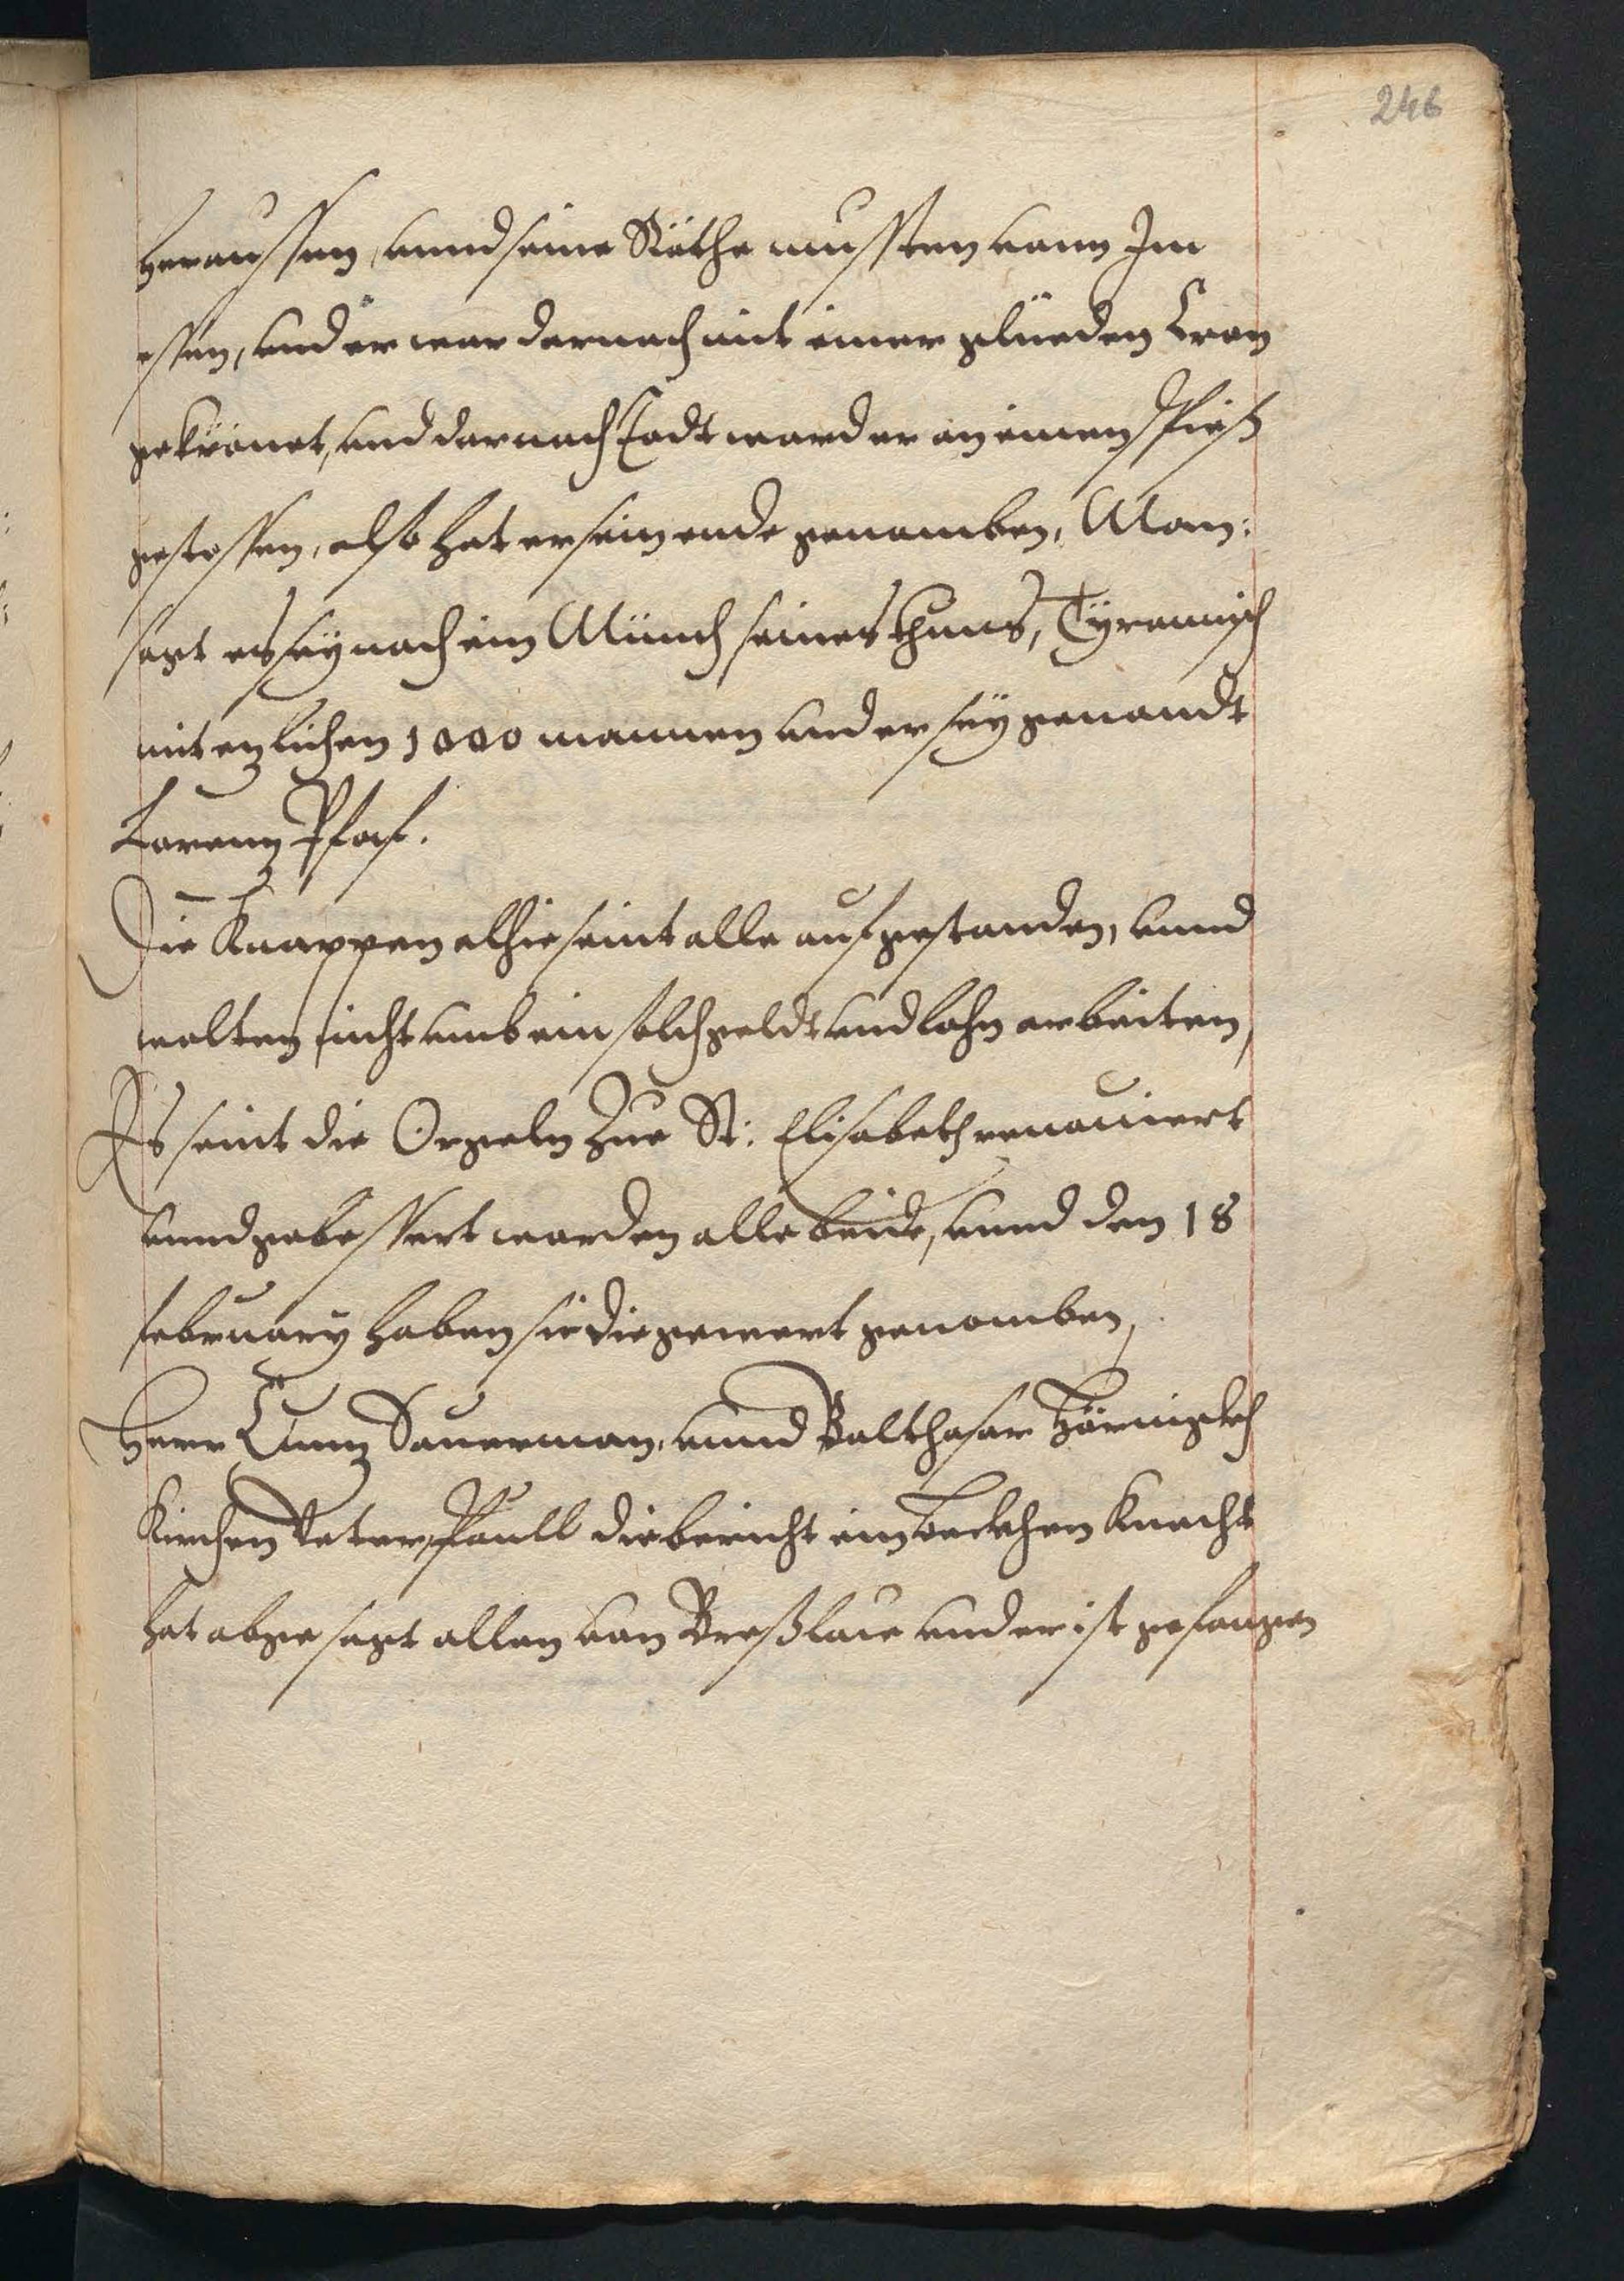 246
heraussen, unnd seine Räthe mussten vonn Im
essen, und er war darnach mit einer glüeden Cron
gekrönet, und darnach Todt ward er an einen Spieß
gestossen, also hat er sein ende genomben, Man:
sagt es sey nach ein Münch seines thuns, Tyrannisch
mit ezlichen 1000 mannen und er sey genandt
Lorenz Pfaf.
Die Knappen alhie seint alle aufgestanden, unnd
wolten nicht umb ein solch geldt und lohn arbeiten,
Es seint die Orgeln Zue St: Elisabeth renouiert
unnd gebessert worden alle beide, unnd den 18
february haben sie die gewert genomben,
Herr Cunz Sauerman, unnd Balthasar Hörnigkh
Kirchen Veter, Paull die bericht ein Beckhen Knecht
hat abgesagt allen von Breßlaw und er ist gefangen